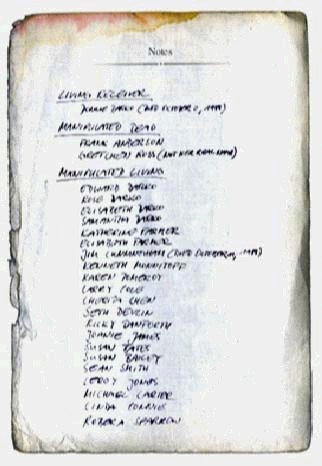 Notes
LIVING RECEIVER
DONNIE DARKO (DIED OCTOBER 2, 1988)
MANIPULATED DEAD
FRANK ANDERSON
GRETCHEN ROSS (NOT HER REAL NAME)
MANIPULATED LIVING
EDWARD DARKO
ROSE DARKO
ELIZABETH DARKO
SAMANTHA DARKO
KATHERINE FARMER
ELISABETH FARMER
JIM CUNNINGHAM (DIED
KENNETH MONNITOFF
KAREN POMEROY
LARRY COLE
CHERITA CHEN
SETH DEVLIN
RICKY DANFORTH
JOANIE JAMES
SUSAN BATES
SUSAN BAILEY
SEAN SMITH
LEROY JONES
MICHAEL CARTER
LINDA CONNIE
SPARROW